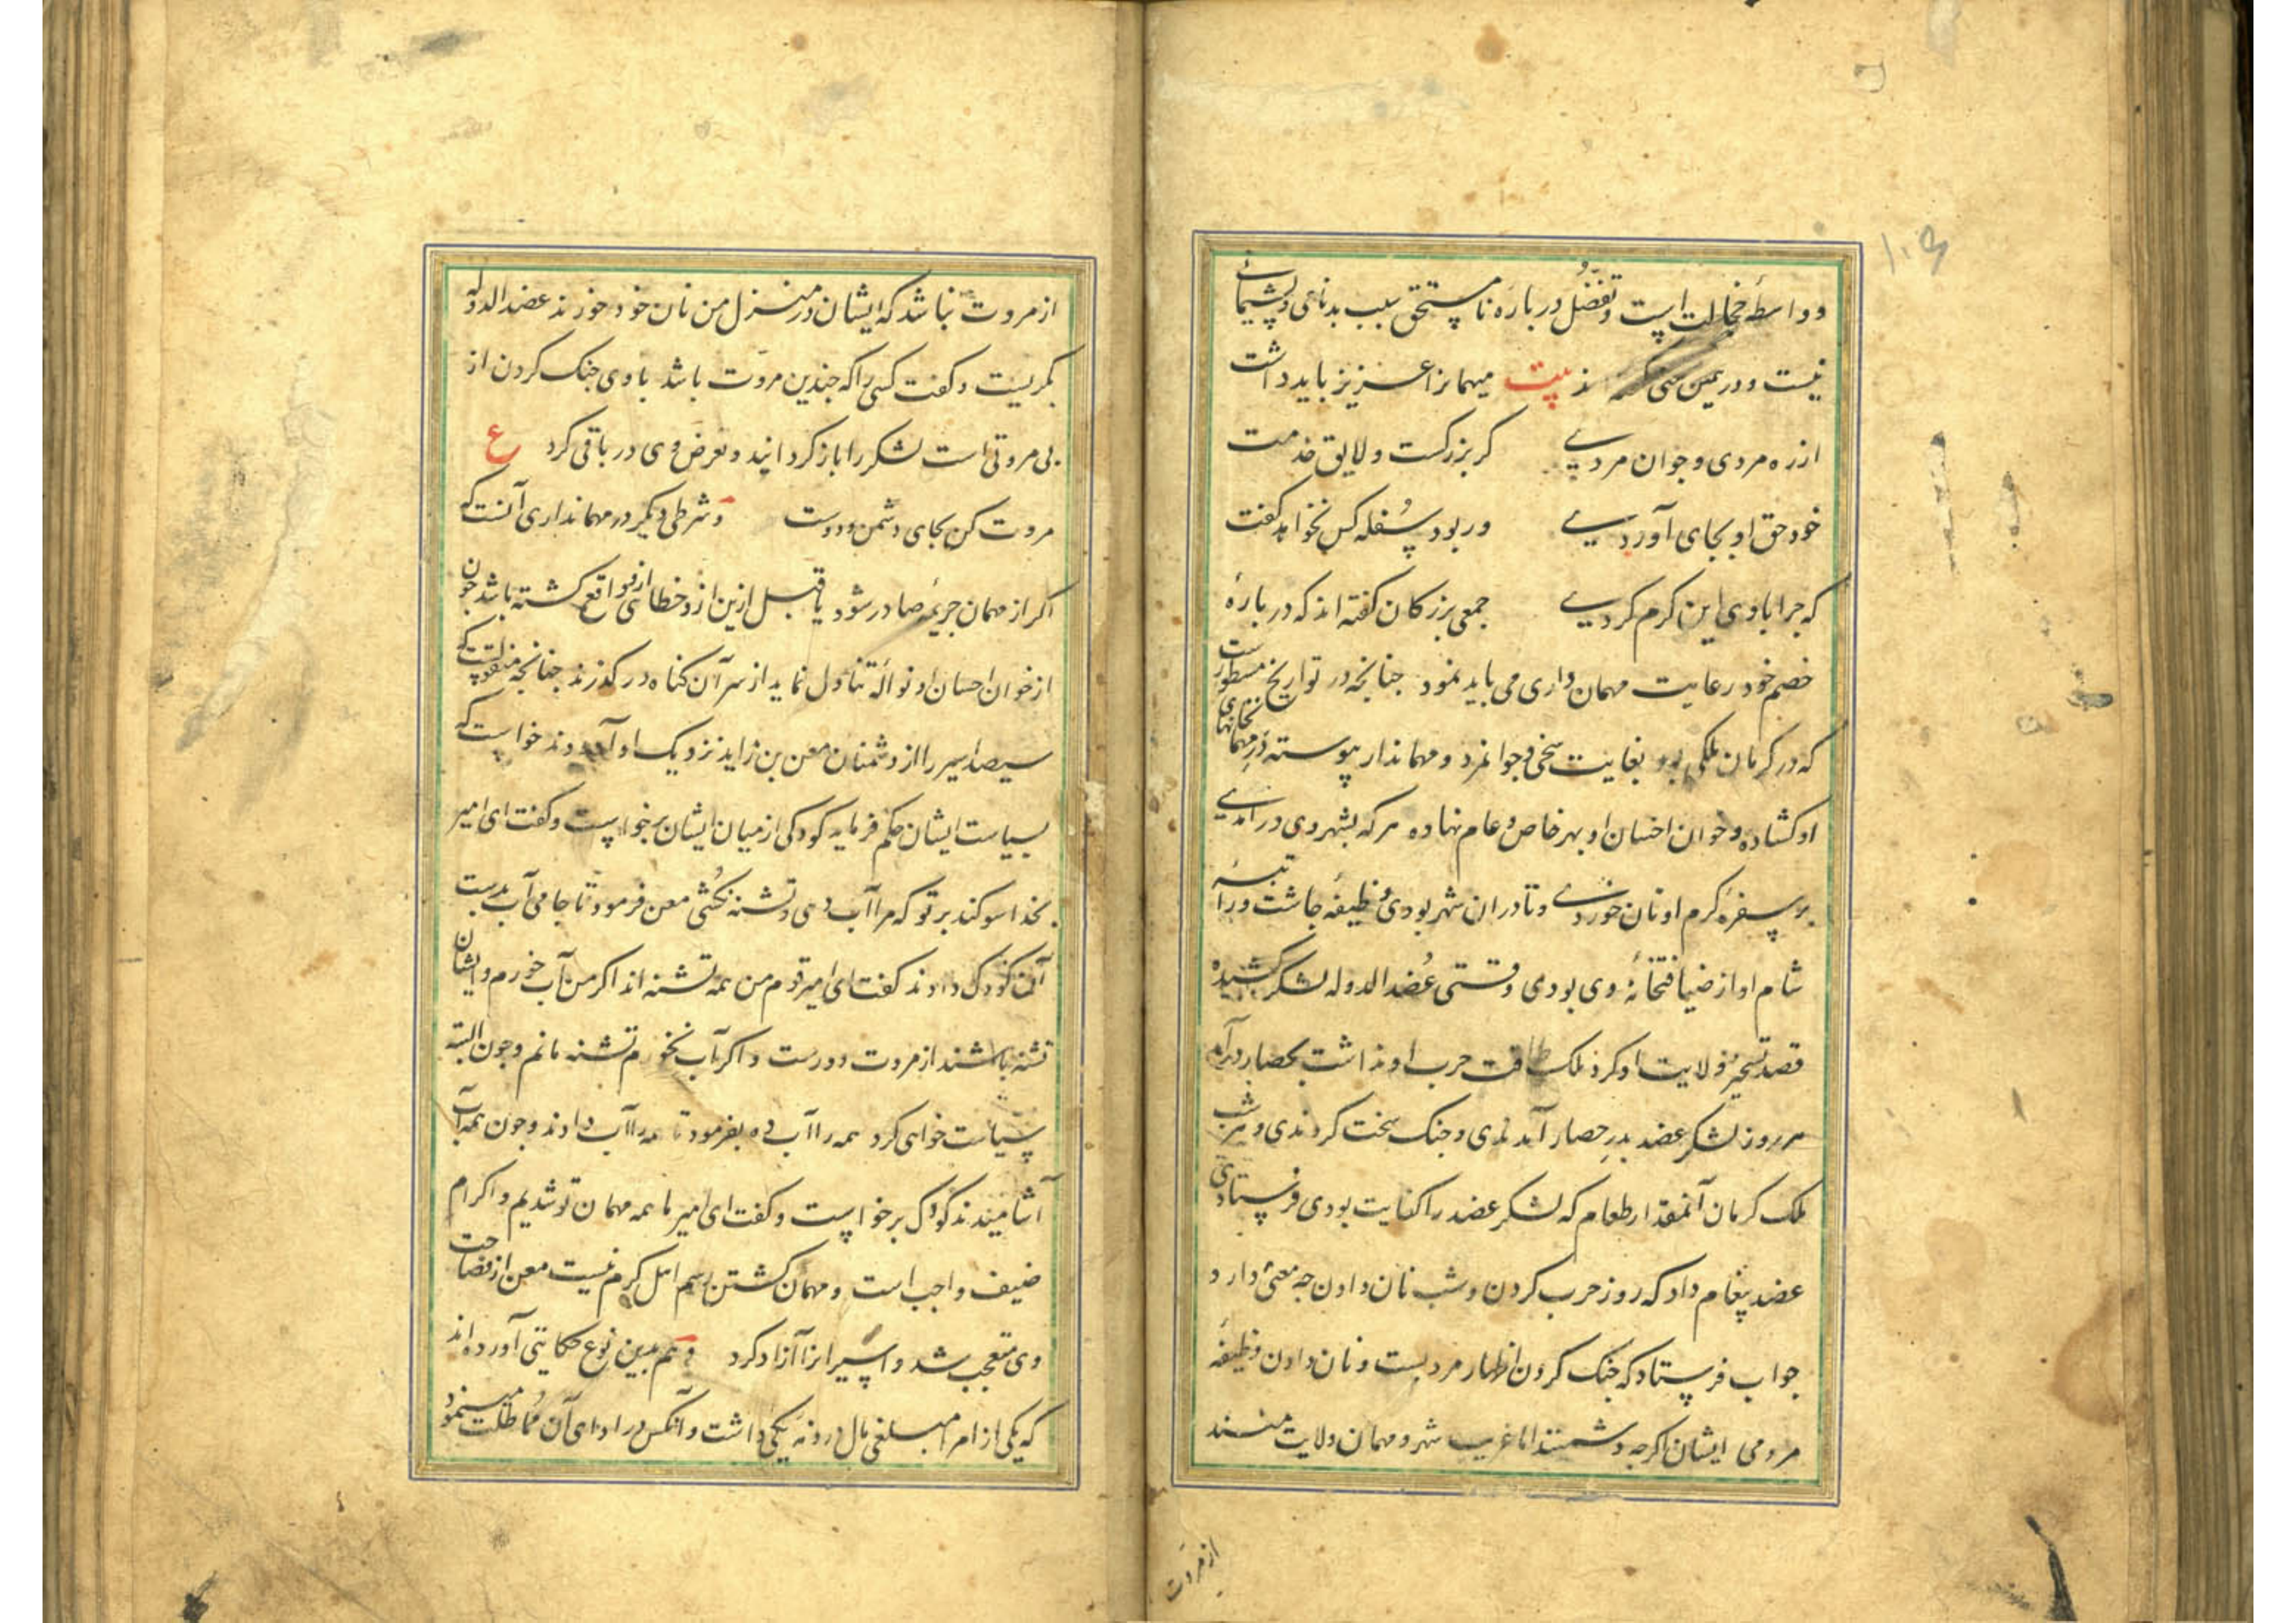 ۱۰۶
و واسطهٔ خجالت است و تفضّل در باره نامستحق سبب بدنامی و پشیمانی
نیست و درین معنی گفته‌اند بیت میهمانرا عزیز باید داشت
از ره مردی و جوان مردی گر بزرگست و لایق خدمت
خود حق او بجای آوردی ور بود سُفله کس نخواهد گفت
که چرا با وی این کرم کردی جمعی بزرکان کفته‌اند که در بارهٔ
خصم خود رعایت مهمان داری می باید نمود جنانجه در تواریخ مسطورست
که در کرمان ملکی بود بغایت سخی و جوانمرد و مهماندار پیوسته درِ مهمانخانهای
او کشاده و خوان احسان او بهر خاص و عام نهاده هر که بشهر وی در آمدی
بر سفرهٔ کرم او نان خوردی و تا در ان شهر بودی وظیفهٔ جاشت و راتبهٔ
شام او از ضیافتخانهٔ وی بودی وقتی عُضد الدوله لشکر کشیده
قصد تسخیر ولایت او کرد ملک طاقت حرب او نداشت بحصار درآمد
هر روز لشکر عضد بدرِ حصار آمدندی و جنک سخت کردندی و هر شب
ملک کرمان آنمقدار طعام که لشکر عضد را کفایت بودی فرستادی
عضد پیغام داد که روز حرب کردن و شب نان دادن جه معنی دارد
جواب فرستاد که جنک کردن اظهار مردیست و نان دادن وظیفهٔ
مردمی ایشان اکرجه دشمنند اما غریب شهر و مهمان ولایت منند
از مروت
از مروت نباشد که ایشان در منزل من نان خود خورند عضد الدوله
بکریست و کفت کسی را که جندین مروت باشد با وی جنک کردن از
بی مروتی است لشکر را باز کردانید و تعرض وی در باقی کرد ع
مروت کن بجای دشمن و دوست و شرطی دیکر در مهمانداری آنست که
اکر از مهمان جریمهٔ صادر شود یا قبل ازین ازو خطائی واقع کشته باشد چون
از خوان احسان او نواله تناول نماید از سر آن کناه در کذرند جنانجه منقولست که
سیصد اسیر را از دشمنان معن بن زایده نزدیک او آوردند خواست که
بسیاست ایشان حکم فرماید کودکی از میان ایشان برخواست و کفت ای امیر
بخدا سوکند بر تو که مرا آب دهی و تشنه نکُشی معن فرمود تا جامی آب بدست
آن کودک دادند کفت ای امیر قوم من همه تشنه اند اکر من آب خورم و ایشان
تشنه باشند از مروت دورست و اکر آب نخورم تشنه مانم و جون البته
سیاست خواهی کرد همه را آب ده بفرمود تا همه را آب دادند و جون همه آب
آشامیدند کودک برخواست و کفت ای امیر ما همه مهمان تو شدیم و اکرام
ضیف واجب است و مهمان کشتن رسم اهل کرم نیست معن از فصاحت
وی متعجب شد و اسیرانرا آزاد کرد و هم بدین نوع حکایتی آورده‌اند
که یکی از امرا مبلغی مال در ذمهٔ یکی داشت و آنکس در ادای آن مُماطلت مینمود